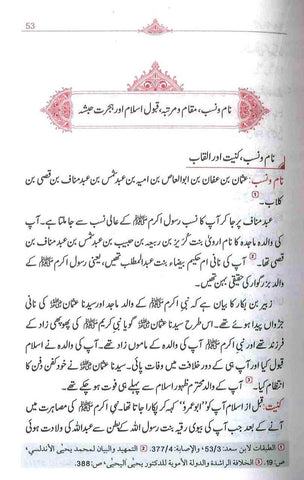 53
نام ونسب، مقام ومرتبہ، قبول اسلام اور ہجرت حبشہ
نام ونسب، کنیت اور القاب
نام ونسب: عثمان بن عفان بن ابوالعاص بن امیہ بن عبدشمس بن عبدمناف بن قصی بن
کلاب۔ 1
عبد مناف پر جا کر آپ کا نسب رسول اکرم ﷺ کے عالی نسب سے جا ملتا ہے۔ آپ
کی والدہ ماجدہ کا نام ارویٰ بنت کُریز بن ربیعہ بن حبیب بن عبدشمس بن عبدمناف بن قصی
تھا۔ 2 آپ کی نانی ام حکیم بیضاء بنت عبدالمطلب تھیں، یعنی رسول اکرم ﷺ کے
والد بزرگوار کی حقیقی بہن تھیں۔
زبیر بن بکار کا بیان ہے کہ نبی اکرم ﷺ کے والد ماجد اور سیدنا عثمان کی نانی
جڑواں پیدا ہوئے تھے۔ اس طرح سیدنا عثمان گویا نبی کریم ﷺ کی پھوپھی زاد کے
فرزند تھے اور نبی اکرم ﷺ آپ کی والدہ کے ماموں زاد تھے۔ آپ کی والدہ نے اسلام
قبول کیا اور آپ ہی کے دور خلافت میں وفات پائی۔ سیدنا عثمان نے خود کفن دفن کا
انتظام کیا۔ 3 آپ کے والد محترم ظہور اسلام سے پہلے ہی فوت ہو چکے تھے۔
کنیت: قبل از اسلام آپ کو ”ابوعمرو“ کہہ کر پکارا جاتا تھا۔ نبی اکرم ﷺ کی بعثت
کے بعد جب آپ کی بیوی رقیہ بنت رسول سے عبداللہ کی ولادت ہوئی
1 الطبقات لابن سعد: 53/3، والإصابة: 377/4. 2 التمهيد والبيان لمحمد يحيى الأندلسي،
ص: 19. 3 الخلافة الراشدة والدولة الأموية للدكتور يحيى اليحيى، ص: 388.